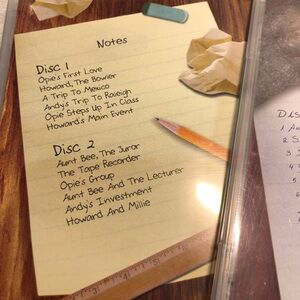 Notes
Disc 1
Opie's First Love
Howard, The Bowler
A Trip To Mexico
Andy's Trip To Raleigh
Opie Steps Up In Class
Howard's Main Event
Disc 2
Aunt Bee, The Juror
The Tape Recorder
Opie's Group
Aunt Bee And The Lecturer
Andy's Investment
Howard And Millie